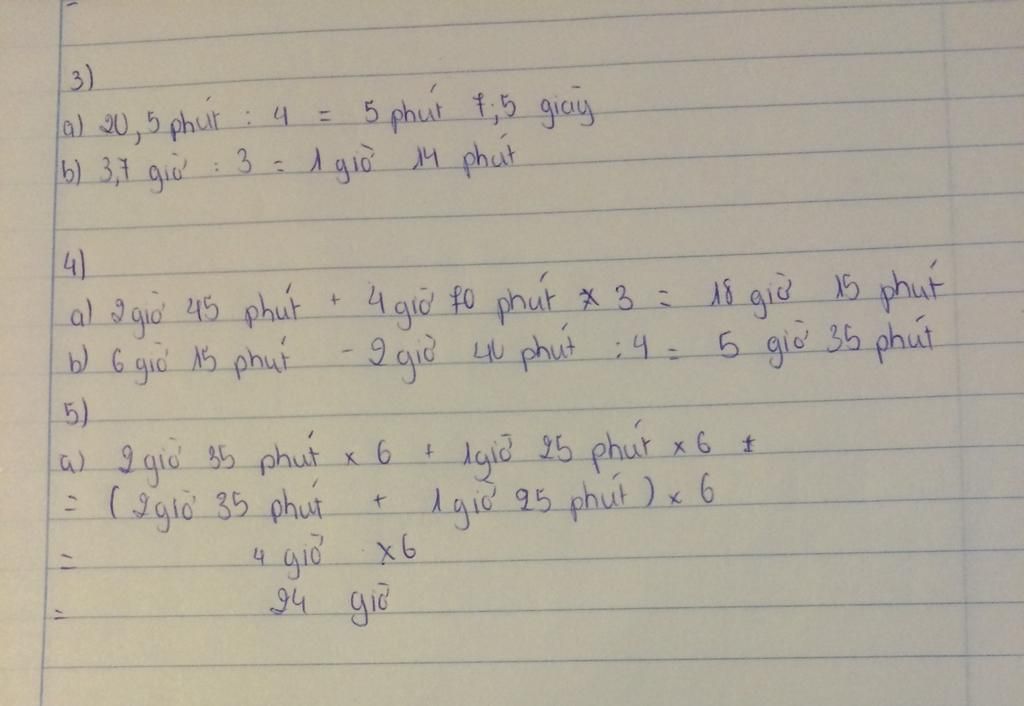 3)
a) 20,5 phút : 4 = 5 phút 7,5 giây
b) 3,7 giờ : 3 = 1 giờ 14 phút
4)
a) 2 giờ 45 phút + 4 giờ 70 phút x 3 = 18 giờ 15 phút
b) 6 giờ 15 phút - 2 giờ 40 phút : 4 = 5 giờ 35 phút
5)
a) 2 giờ 35 phút x 6 + 1 giờ 25 phút x 6
= (2 giờ 35 phút + 1 giờ 25 phút) x 6
= 4 giờ x 6
= 24 giờ